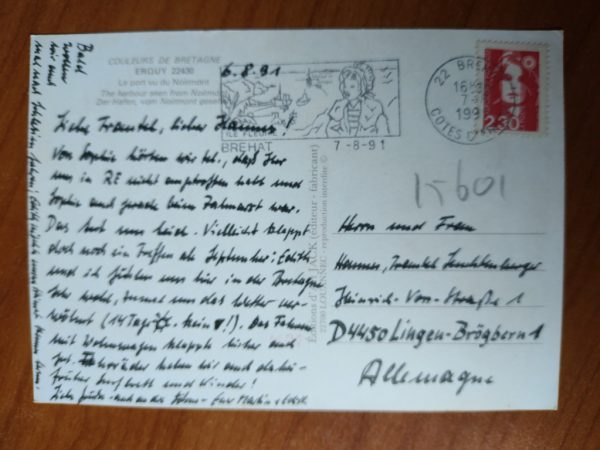 COULEURS DE BRETAGNE
ERQUY 22430
Le port vu du Noirmont
The harbour seen from Noirmont
Der Hafen, vom Noirmont gesehen
6.8.91
ILE FLEURIE
BREHAT
7-8-91
22 BRE
16H
7-8
199
COTES D'AR
2,30
Liebe Trautel, lieber Hannes!
Von Sophie hörten wir tel., daß Ihr
uns in RE nicht angetroffen habt und
Sophie auch gerade beim Zahnarzt war.
Das tut uns leid. Vielleicht klappt
doch noch ein Treffen ab September! Edith
und ich fühlen uns hier in der Bretagne
sehr wohl, zumal uns das Wetter ver-
wöhnt (14 Tage kein !). Das Fahren
mit Wohnwagen klappte bisher auch
gut. Fahrräder haben wir auch dabei
früher Surfbrett und Kinder!
Liebe Grüße - auch an die Söhne - Eure Martin + Edith
Bald
wollen
wir auch
mal nach Schlesien fahren!
Éditions d'Art JACK (éditeur - fabricant)
22190 - reproduction interdite ©
15601
Herrn und Frau
Hannes, Trautel
Heinrich-Von-Straße 1
D4450 Lingen-Brögbern 1
Allemagne